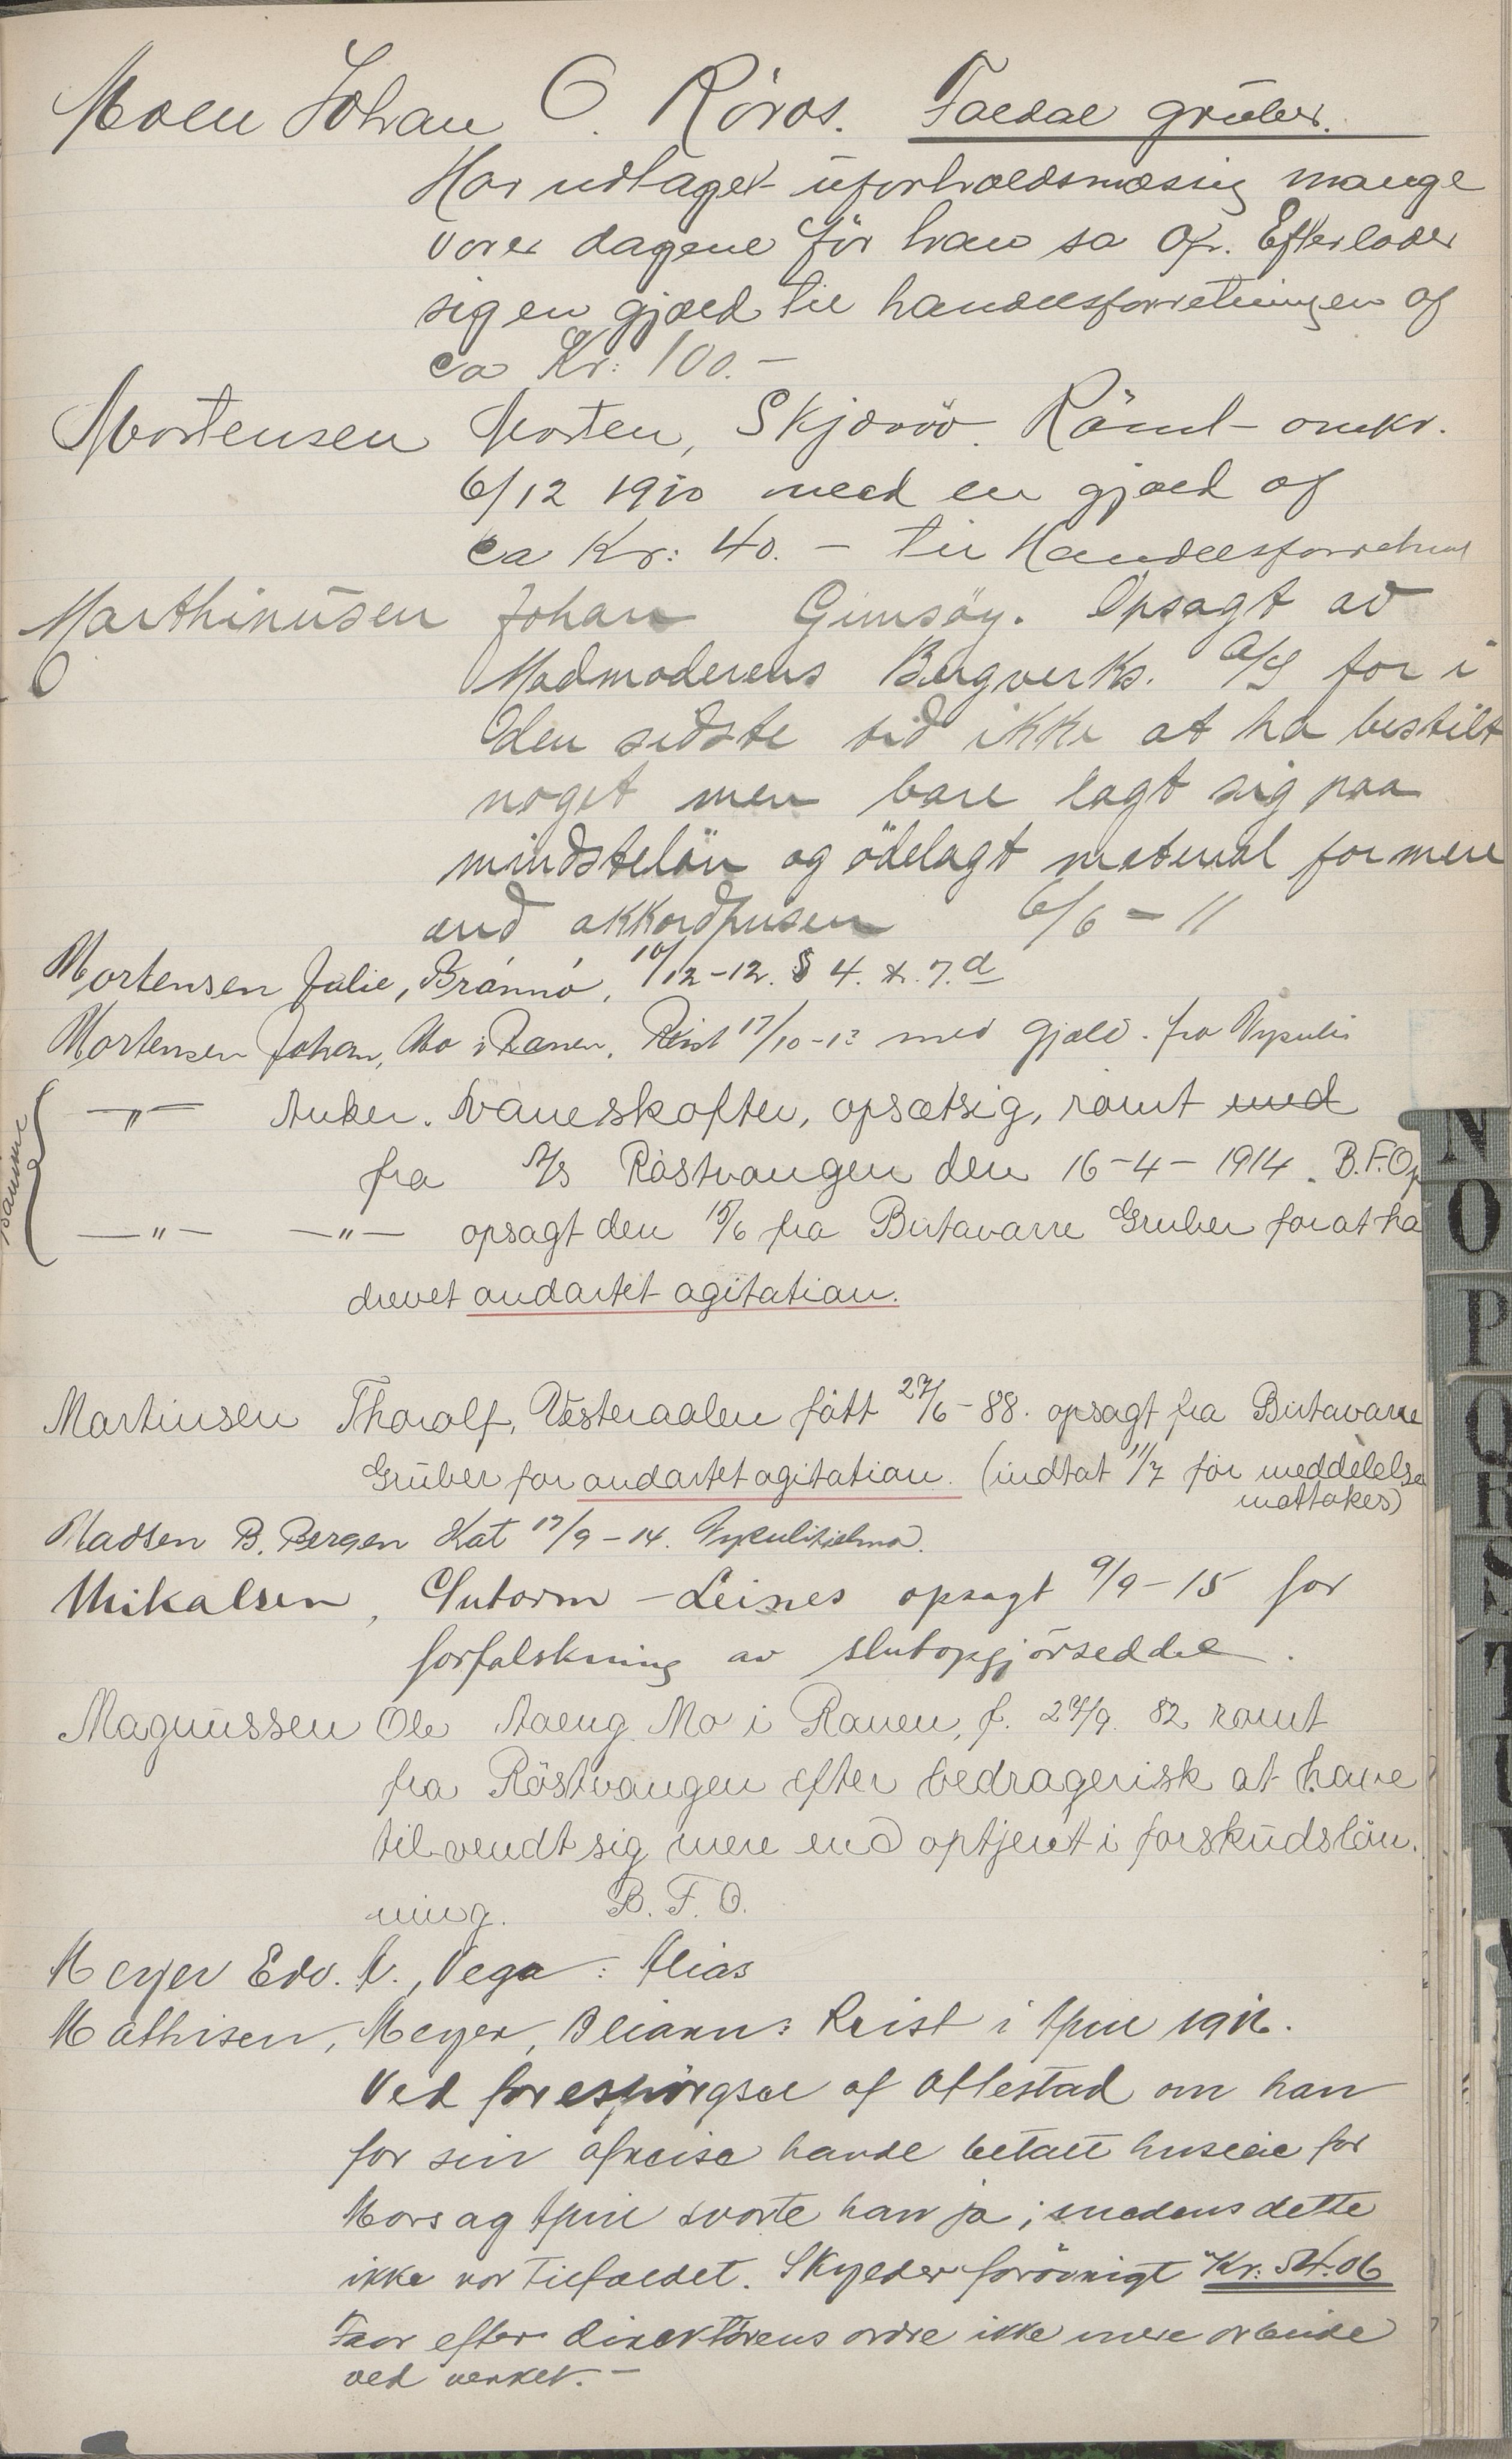 Moen Johan O. Röros. Foldal grüber.
Har udtaget üforholdsmæsig mange
varer dagene för han sa op. Efterlader
sig en gjæld til handelsforretningen af
ca Kr: 100.-
Mortensen Morten, Skjærvö. Römt omkr.
6/12 1910 med en gjæld af
ca Kr: 40. - til Handelsforretning
Marthinüsen Johan Gimsöy. Opsagt av
Madmoderens Bergverks. A/S for i
den sidste tid ikke at ha bestilt
noget men bare lagt sig paa
mindstelön og ödelagt material for mere
end akkordprisen 6/6 - 11
Mortensen Julie, Brönnö, 10/12-12. § 4. 7.d
Mortensen Johan, Mo i Ranen, Reist 17/10-13 med gjæld. fra
samme
—"— Anker. Naneskoften, opsætsig, römt med
fra A/S Röstvangen den 16-4-1914. B.F.Op
—"— —"— opsagt den 15/6 fra Birtavarre Gruber for at ha
drevet ondartet agitation.
Martinsen Thorolf, Vesteraalen fött 27/6-88. opsagt fra Birtavarre
Grüber for ondartet agitation. (indtat 11/7 för meddelelse
mottokes)
Madsen B. Bergen Kat 17/9-14.
Mikalsen, Gutorm - Leines opsagt 9/9-15 for
forfalskning av slutopgjörseddel.
Magnüssen Ole Aaeng Mo i Ranen, f. 27/9. 82 römt
fra Röstvangen efter bedragerisk at have
tilvendt sig mere end optjent i forskudslön.
ning. B. F. O.
Meyer Edv. A., Vega: Alias
Mathisen, Meyer, : Reist i April 1916.
Ved forespörgsel af Ollestad om han
för sin afreise havde betalt husleie for
Mars og April svarte han ja; medens dette
ikke var tilfældet. Skylder forövrigt Kr: 54.06
Faar efter direktörens ordre ikke mere arbeide
ved verket.-
N
O
P
Q
R
S
T
U
V